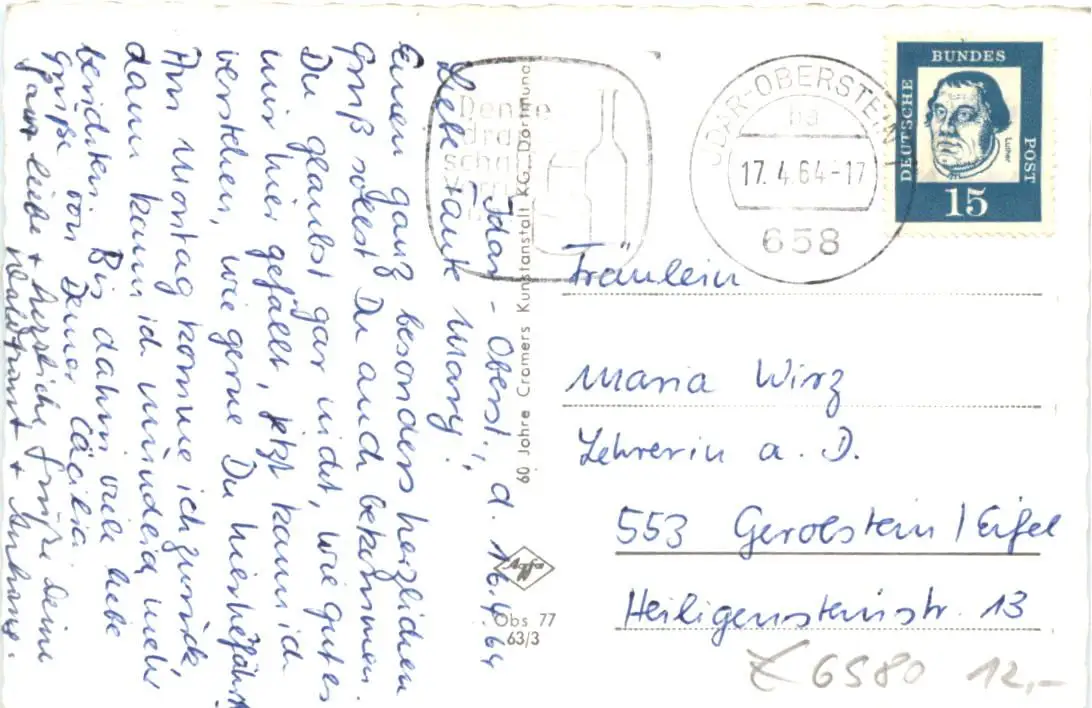 Idar-Oberst., d. 16.4.64
Liebe Tante Mary!
Einen ganz besonders herzlichen
Gruß sollst Du auch bekommen.
Du glaubst gar nicht, wie gut es
mir hier gefällt, jetzt kann ich
verstehen, wie gerne Du hierhefährst
Am Montag komme ich zurück
dann kann ich mündlich mehr
berichten. Bis dahin viele liebe
Grüße von Deiner Cäcilia
Ganz liebe + herzliche Grüße Deine
Waldtraut + Anhang.
60 Jahre Cramers Kunstanstalt KG. Dortmund
Agfa
Obs 77
63/3
Denke
dra
scha
IDAR-OBERSTEIN 1
ba
17.4.64-17
658
DEUTSCHE
BUNDES
POST
Luther
15
Fräulein
Maria Wirz
Lehrerin a. D.
553 Gerolstein/Eifel
Heiligensteinstr. 13
6580 12,-